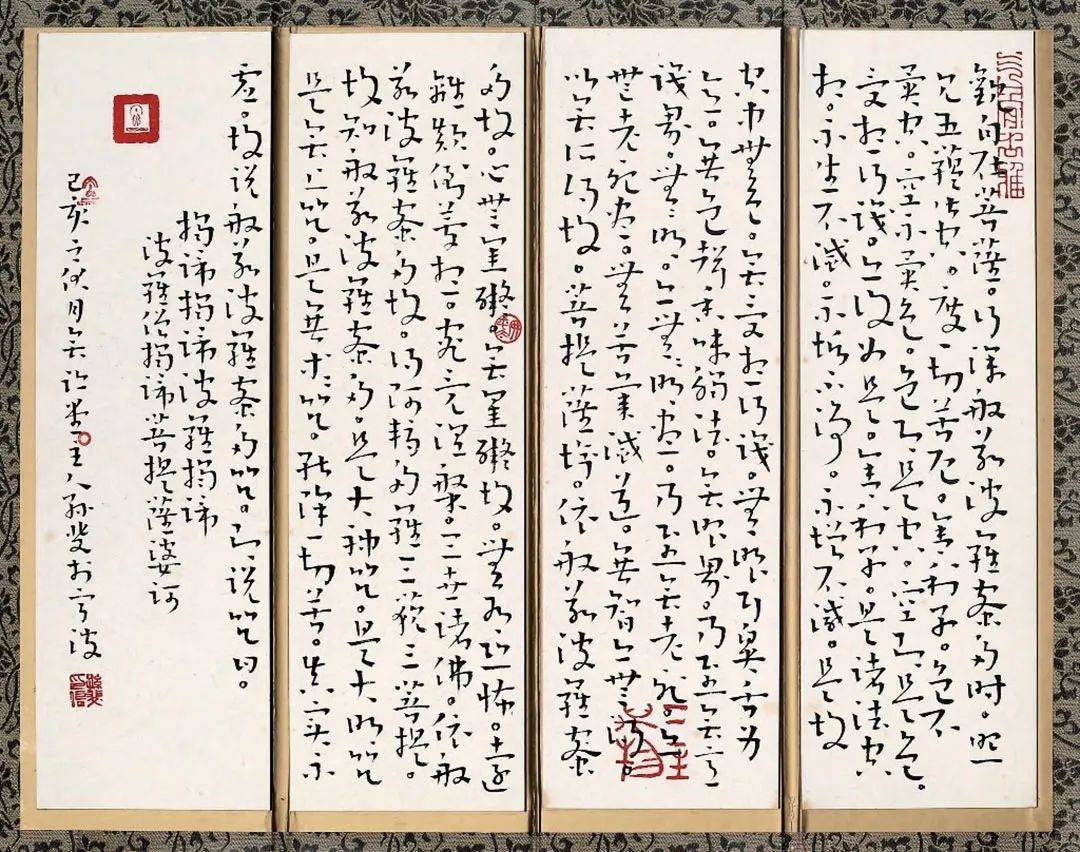 觀自在菩薩。行深般若波羅蜜多時。照
見五蘊皆空。度一切苦厄。舍利子。色不
異空。空不異色。色即是空。空即是色。
受想行識。亦復如是。舍利子。是諸法空
相。不生不滅。不垢不淨。不增不減。是故
空中無色。無受想行識。無眼耳鼻舌身
意。無色聲香味觸法。無眼界。乃至無意
識界。無無明。亦無無明盡。乃至無老死。亦
無老死盡。無苦集滅道。無智亦無得。
以無所得故。菩提薩埵。依般若波羅蜜
多故。心無罣礙。無罣礙故。無有恐怖。遠
離顛倒夢想。究竟涅槃。三世諸佛。依般
若波羅蜜多故。得阿耨多羅三藐三菩提。
故知般若波羅蜜多。是大神咒。是大明咒
是無上咒。是無等等咒。能除一切苦。真實不
虛。故說般若波羅蜜多咒。即說咒曰。
揭諦揭諦波羅揭諦
波羅僧揭諦菩提薩婆訶
己亥之伏月主人孫斐於寧波